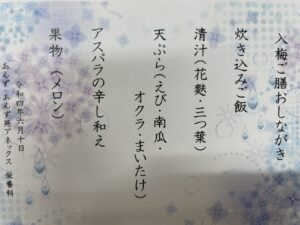 入梅ご膳おしながき
炊き込みご飯
清汁(花麩・三つ葉)
天ぷら(えび・南瓜・
オクラ・まいたけ)
アスパラの辛し和え
果物(メロン)
令和四年六月十日
あんず・あんず苑アネックス 栄養科